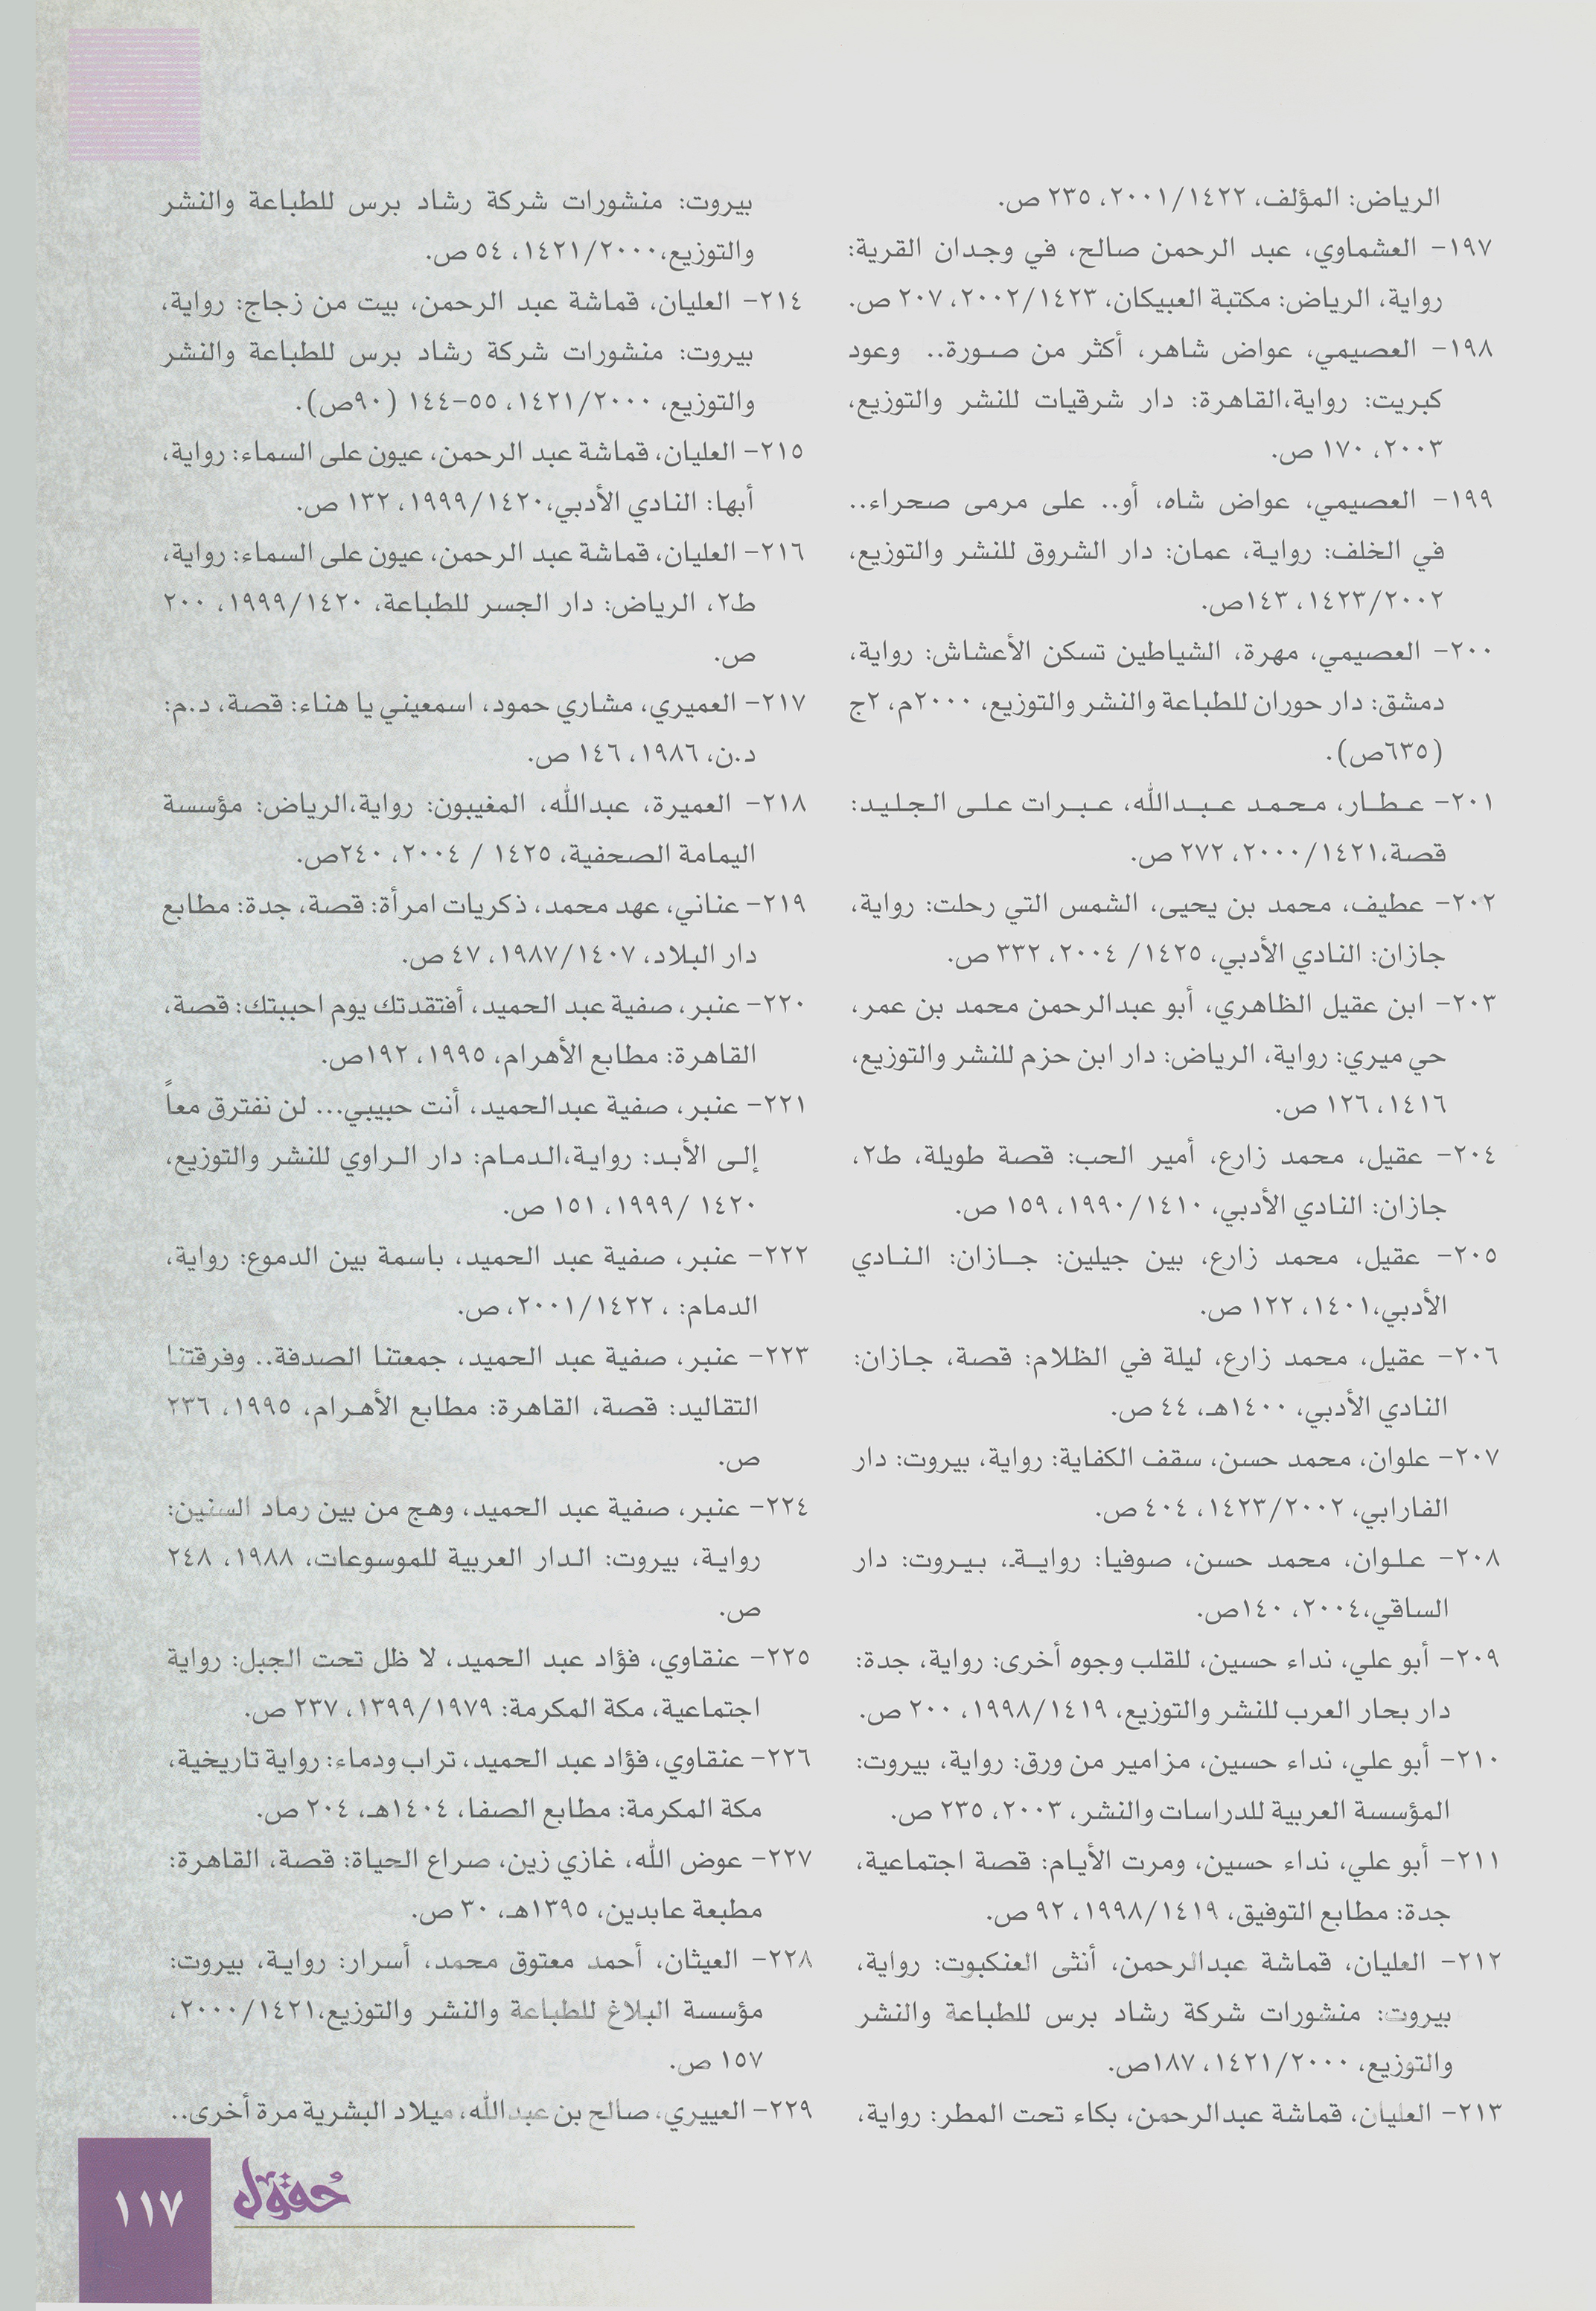 الرياض: المؤلف، ٢٠٠١/١٤٢٢، ٢٣٥ ص.
١٩٧- العشماوي، عبد الرحمن صالح، في وجدان القرية:
رواية، الرياض: مكتبة العبيكان، ٢٠٠٢/١٤٢٣، ٢٠٧ ص.
١٩٨- العصيمي، عواض شاهر، أكثر من صورة.. وعود
كبريت: رواية،القاهرة: دار شرقيات للنشر والتوزيع،
٢٠٠٣، ١٧٠ ص.
١٩٩- العصيمي، عواض شاه، أو.. على مرمى صحراء..
في الخلف: رواية، عمان: دار الشروق للنشر والتوزيع،
١٤٢٣/٢٠٠٢، ١٤٣ص.
٢٠٠- العصيمي، مهرة، الشياطين تسكن الأعشاش: رواية،
دمشق: دار حوران للطباعة والنشر والتوزيع، ٢٠٠٠م، ٢ج
(٦٣٥ص).
٢٠١- عطار، محمد عبدالله، عبرات على الجليد:
قصة،٢٠٠٠/١٤٢١، ٢٧٢ ص.
٢٠٢- عطيف، محمد بن يحيى، الشمس التي رحلت: رواية،
جازان: النادي الأدبي، ١٤٢٥/ ٢٠٠٤، ٣٣٢ ص.
٢٠٣- ابن عقيل الظاهري، أبو عبدالرحمن محمد بن عمر،
حي ميري: رواية، الرياض: دار ابن حزم للنشر والتوزيع،
١٤١٦، ١٢٦ ص.
٢٠٤- عقيل، محمد زارع، أمير الحب: قصة طويلة، ط٢،
جازان: النادي الأدبي، ١٩٩٠/١٤١٠، ١٥٩ ص.
٢٠٥- عقيل، محمد زارع، بين جيلين: جازان: النادي
الأدبي،١٤٠١، ١٢٢ ص.
٢٠٦- عقيل، محمد زارع، ليلة في الظلام: قصة، جازان:
النادي الأدبي، ١٤٠٠هـ، ٤٤ ص.
٢٠٧- علوان، محمد حسن، سقف الكفاية: رواية، بيروت: دار
الفارابي، ١٤٢٣/٢٠٠٢، ٤٠٤ ص.
٢٠٨- علوان، محمد حسن، صوفيا: رواية، بيروت: دار
الساقي،٢٠٠٤، ١٤٠ص.
٢٠٩- أبو علي، نداء حسين، للقلب وجوه أخرى: رواية، جدة:
دار بحار العرب للنشر والتوزيع، ١٩٩٨/١٤١٩، ٢٠٠ ص.
٢١٠- أبو علي، نداء حسين، مزامير من ورق: رواية، بيروت:
المؤسسة العربية للدراسات والنشر، ٢٠٠٣، ٢٣٥ ص.
٢١١- أبو علي، نداء حسين، ومرت الأيام: قصة اجتماعية،
جدة: مطابع التوفيق، ١٩٩٨/١٤١٩، ٩٢ ص.
٢١٢- العليان، قماشة عبدالرحمن، أنثى العنكبوت: رواية،
بيروت: منشورات شركة رشاد برس للطباعة والنشر
والتوزيع، ١٤٢١/٢٠٠٠، ١٨٧ص.
٢١٣- العليان، قماشة عبدالرحمن، بكاء تحت المطر: رواية،
بيروت: منشورات شركة رشاد برس للطباعة والنشر
والتوزيع،١٤٢١/٢٠٠٠، ٥٤ ص.
٢١٤- العليان، قماشة عبد الرحمن، بيت من زجاج: رواية،
بيروت: منشورات شركة رشاد برس للطباعة والنشر
والتوزيع، ١٤٢١/٢٠٠٠، ٥٥-١٤٤ (٩٠ص).
٢١٥- العليان، قماشة عبد الرحمن، عيون على السماء: رواية،
أبها: النادي الأدبي،١٩٩٩/١٤٢٠، ١٣٢ ص.
٢١٦- العليان، قماشة عبد الرحمن، عيون على السماء: رواية،
ط٢، الرياض: دار الجسر للطباعة، ١٩٩٩/١٤٢٠، ٢٠٠
ص.
٢١٧- العميري، مشاري حمود، اسمعيني يا هناء: قصة، د.م:
د.ن، ١٩٨٦، ١٤٦ ص.
٢١٨- العميرة، عبدالله، المغيبون: رواية،الرياض: مؤسسة
اليمامة الصحفية، ١٤٢٥ / ٢٠٠٤، ٢٤٠ص.
٢١٩- عناني، عهد محمد، ذكريات امرأة: قصة، جدة: مطابع
دار البلاد، ١٩٨٧/١٤٠٧، ٤٧ ص.
٢٢٠- عنبر، صفية عبد الحميد، أفتقدتك يوم احببتك: قصة،
القاهرة: مطابع الأهرام، ١٩٩٥، ١٩٢ص.
٢٢١- عنبر، صفية عبدالحميد، أنت حبيبي... لن نفترق معاً
إلى الأبد: رواية،الدمام: دار الراوي للنشر والتوزيع،
١٤٢٠ /١٩٩٩، ١٥١ ص.
٢٢٢- عنبر، صفية عبد الحميد، باسمة بين الدموع: رواية،
الدمام: ، ٢٠٠١/١٤٢٢، ص.
٢٢٣- عنبر، صفية عبد الحميد، جمعتنا الصدفة.. وفرقتنا
التقاليد: قصة، القاهرة: مطابع الأهرام، ١٩٩٥، ٢٣٦
ص.
٢٢٤- عنبر، صفية عبد الحميد، وهج من بين رماد السنين:
رواية، بيروت: الدار العربية للموسوعات، ١٩٨٨، ٢٤٨
ص.
٢٢٥- عنقاوي، فؤاد عبد الحميد، لا ظل تحت الجبل: رواية
اجتماعية، مكة المكرمة: ١٣٩٩/١٩٧٩، ٢٣٧ ص.
٢٢٦- عنقاوي، فؤاد عبد الحميد، تراب ودماء: رواية تاريخية،
مكة المكرمة: مطابع الصفا، ١٤٠٤هـ، ٢٠٤ ص.
٢٢٧- عوض الله، غازي زين، صراع الحياة: قصة، القاهرة:
مطبعة عابدين، ١٣٩٥هـ، ٣٠ ص.
٢٢٨- العيثان، أحمد معتوق محمد، أسرار: رواية، بيروت:
مؤسسة البلاغ للطباعة والنشر والتوزيع،٢٠٠٠/١٤٢١،
١٥٧ ص.
٢٢٩- العييري، صالح بن عبدالله، ميلاد البشرية مرة أخرى..
حُقول
١١٧